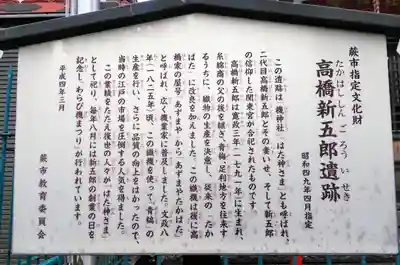 蕨市指定文化財
高橋新五郎遺跡
たかはししんごろういせき
昭和四九年四月指定
この遺跡は「機神社」「はた神さま」とも呼ばれ、
二代目高橋新五郎とその妻いせ、そして新五郎
の信仰した関東宮が合祀されたものです。
高橋新五郎は寛政三年(一七九一年)に生まれ、
糸綿商の父の後を継ぎ、青梅、足利地方を往来す
るうちに、織物の生産を決意し、従来の「たか
はた」に改良を加えました。この織機は後に高
橋家の屋号「あずまや」から「あずまやたかはた」
と呼ばれ、広く機業家に普及しました。文政八
年(一八二五年)頃、この織機を使って「青縞」の
生産を行い、さらに品質の向上をはかったので、
当時の江戸の市場を圧倒する人気を得ました。
この業績をたたえ後世の人々が「はた神さま」
として祀り、毎年八月には新五郎の創業の日を
記念し「わらび機まつり」が行われています。
平成四年三月
蕨市教育委員会